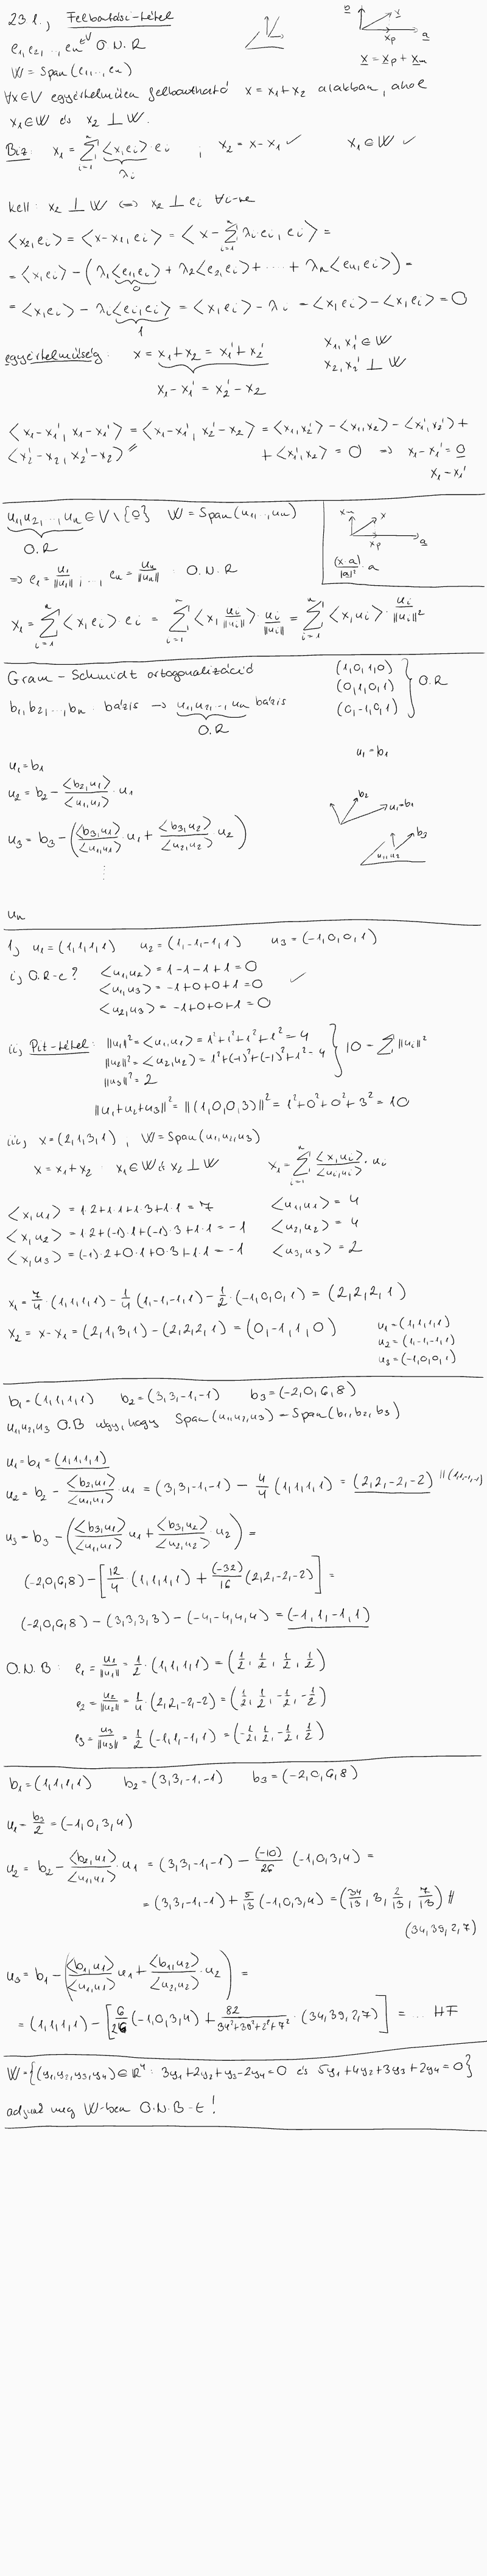 23 l., Felbontási-tétel
e₁, e₂, ..., eₙ ∈V O.N.R
W = Span(e₁, ..., eₙ)
x = x_p + x_m
∀x∈V egyértelműen felbontható x = x₁+x₂ alakban, ahol
x₁∈W és x₂ ⊥ W.
Biz: x₁ = Σ_{i=1}^{n} <x,eᵢ>·eᵢ ; x₂ = x-x₁ ✓ x₁∈W ✓
λᵢ
kell: x₂ ⊥ W ⟺ x₂ ⊥ eᵢ ∀i-re
<x₂,eᵢ> = <x-x₁,eᵢ> = <x - Σ_{i=1}^{n} λᵢeᵢ, eᵢ> =
= <x,eᵢ> - (λ₁<e₁,eᵢ> + λ₂<e₂,eᵢ> + ... + λₙ<eₙ,eᵢ>) =
0
= <x,eᵢ> - λᵢ<eᵢ,eᵢ> = <x,eᵢ> - λᵢ = <x,eᵢ> - <x,eᵢ> = 0
1
egyértelműség: x = x₁+x₂ = x₁'+x₂' x₁,x₁'∈W
x₂,x₂' ⊥ W
x₁-x₁' = x₂'-x₂
<x₁-x₁', x₁-x₁'> = <x₁-x₁', x₂'-x₂> = <x₁,x₂'> - <x₁,x₂> - <x₁',x₂'> +
<x₂'-x₂, x₂'-x₂> + <x₁',x₂> = 0 ⇒ x₁-x₁' = 0
x₁ = x₁'
u₁,u₂, ..., uₙ ∈ V\{0} W = Span(u₁, ..., uₙ)
O.R
⇒ e₁ = u₁/||u₁||, ..., eₙ = uₙ/||uₙ|| : O.N.R
x_m x x_p a
(x·a)/|a|² · a
x₁ = Σ_{i=1}^{n} <x,eᵢ>·eᵢ = Σ_{i=1}^{n} <x, uᵢ/||uᵢ||>·uᵢ/||uᵢ|| = Σ_{i=1}^{n} <x,uᵢ>·uᵢ/||uᵢ||²
Gram-Schmidt ortogonalizáció
(1,0,1,0)
(0,1,0,1) } O.R
(0,-1,0,1)
b₁,b₂, ..., bₙ bázis → u₁,u₂, ..., uₙ bázis
O.R
u₁ = b₁
u₁ = b₁
u₂ = b₂ - <b₂,u₁>/<u₁,u₁> · u₁
b₂ u₁=b₁
u₃ = b₃ - (<b₃,u₁>/<u₁,u₁> · u₁ + <b₃,u₂>/<u₂,u₂> · u₂)
b₃ u₁,u₂
⋮
uₙ
1, u₁ = (1,1,1,1) u₂ = (1,-1,-1,1) u₃ = (-1,0,0,1)
i, O.R-e? <u₁,u₂> = 1-1-1+1 = 0
<u₁,u₃> = -1+0+0+1 = 0 ✓
<u₂,u₃> = -1+0+0+1 = 0
ii, Pit-tétel: ||u₁||² = <u₁,u₁> = 1²+1²+1²+1² = 4
||u₂||² = <u₂,u₂> = 1²+(-1)²+(-1)²+1² = 4 } 10 = Σ||uᵢ||²
||u₃||² = 2
||u₁+u₂+u₃||² = ||(1,0,0,3)||² = 1²+0²+0²+3² = 10
iii, x = (2,1,3,1), W = Span(u₁,u₂,u₃)
x = x₁+x₂ x₁∈W és x₂ ⊥ W x₁ = Σ_{i=1}^{n} <x,uᵢ>/<uᵢ,uᵢ> · uᵢ
<x,u₁> = 1·2+1·1+1·3+1·1 = 7 <u₁,u₁> = 4
<x,u₂> = 1·2+(-1)·1+(-1)·3+1·1 = -1 <u₂,u₂> = 4
<x,u₃> = (-1)·2+0·1+0·3+1·1 = -1 <u₃,u₃> = 2
x₁ = 7/4·(1,1,1,1) - 1/4(1,-1,-1,1) - 1/2·(-1,0,0,1) = (2,2,2,1)
x₂ = x-x₁ = (2,1,3,1)-(2,2,2,1) = (0,-1,1,0)
u₁=(1,1,1,1)
u₂=(1,-1,-1,1)
u₃=(-1,0,0,1)
b₁=(1,1,1,1) b₂=(3,3,-1,-1) b₃=(-2,0,6,8)
u₁,u₂,u₃ O.B úgy, hogy Span(u₁,u₂,u₃) = Span(b₁,b₂,b₃)
u₁ = b₁ = (1,1,1,1)
u₂ = b₂ - <b₂,u₁>/<u₁,u₁> · u₁ = (3,3,-1,-1) - 4/4 (1,1,1,1) = (2,2,-2,-2) || (1,1,-1,-1)
u₃ = b₃ - (<b₃,u₁>/<u₁,u₁> u₁ + <b₃,u₂>/<u₂,u₂> · u₂) =
(-2,0,6,8) - [12/4 · (1,1,1,1) + (-32)/16 (2,2,-2,-2)] =
(-2,0,6,8) - (3,3,3,3) - (-4,-4,4,4) = (-1,1,-1,1)
O.N.B: e₁ = u₁/||u₁|| = 1/2·(1,1,1,1) = (1/2, 1/2, 1/2, 1/2)
e₂ = u₂/||u₂|| = 1/4·(2,2,-2,-2) = (1/2, 1/2, -1/2, -1/2)
e₃ = u₃/||u₃|| = 1/2 (-1,1,-1,1) = (-1/2, 1/2, -1/2, 1/2)
b₁=(1,1,1,1) b₂=(3,3,-1,-1) b₃=(-2,0,6,8)
u₁ = b₃/2 = (-1,0,3,4)
u₂ = b₂ - <b₂,u₁>/<u₁,u₁> · u₁ = (3,3,-1,-1) - (-10)/26 (-1,0,3,4) =
= (3,3,-1,-1) + 5/13 (-1,0,3,4) = (34/13, 3, 2/13, 7/13) ∥
(34,39,2,7)
u₃ = b₁ - (<b₁,u₁>/<u₁,u₁> u₁ + <b₁,u₂>/<u₂,u₂> · u₂) =
= (1,1,1,1) - [6/26 (-1,0,3,4) + 82/(34²+39²+2²+7²) · (34,39,2,7)] = ... HF
W = {(y₁,y₂,y₃,y₄)∈ℝ⁴ : 3y₁+2y₂+y₃-2y₄=0 és 5y₁+4y₂+3y₃+2y₄=0}
adjunk meg W-ben O.N.B-t!